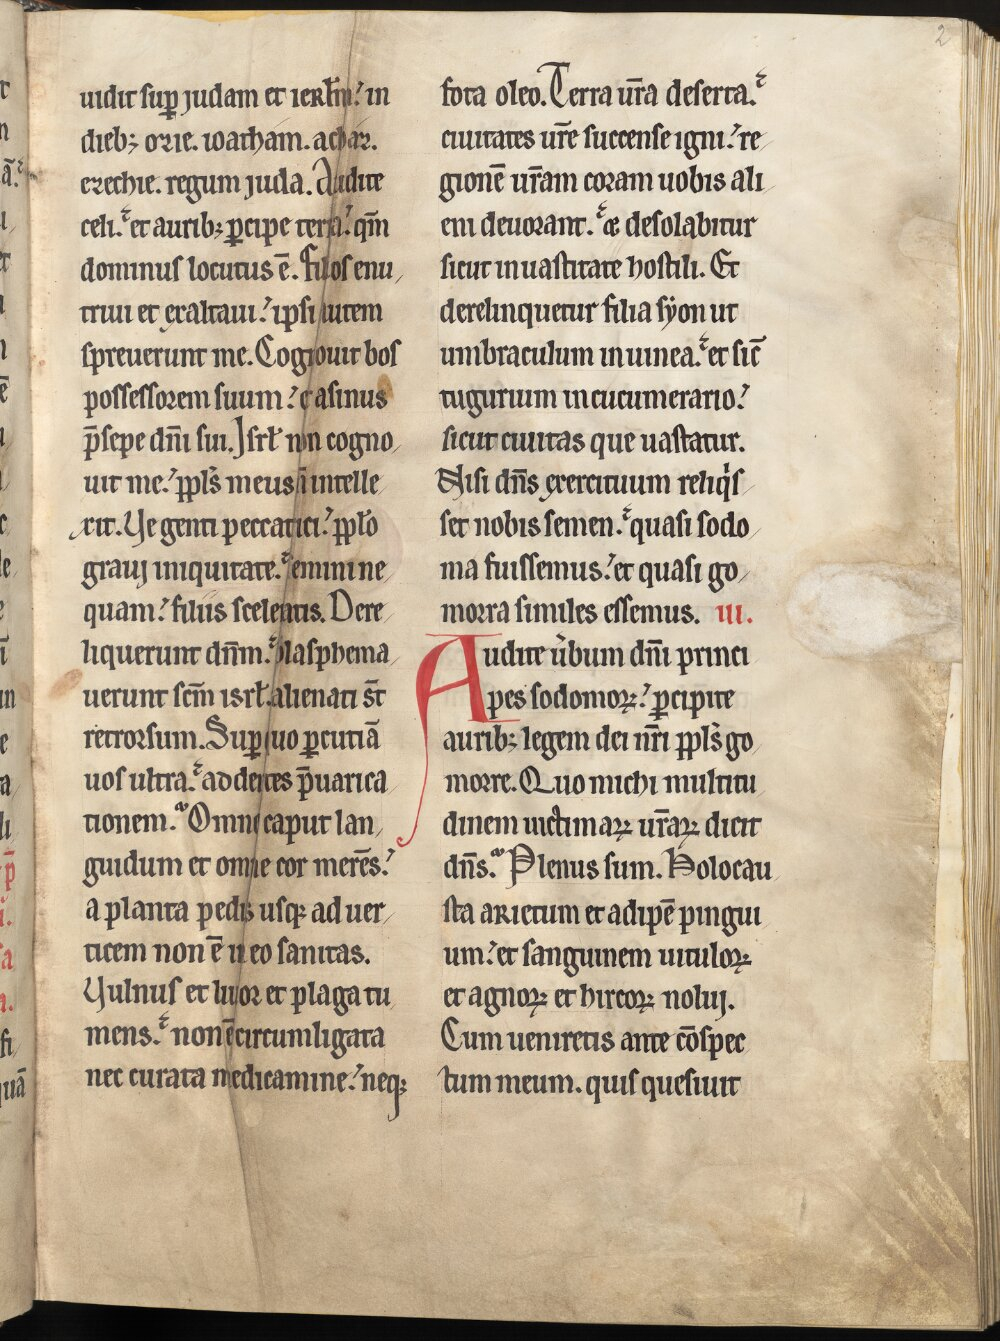 uidit sup̱ judam et ierłm: in
dieb; ozie. ioathan. achaz.
ezechie. regum juda. Audite
celi. et aurib; ꝑcipe terra: qm̄
dominus locutus ē. Filios enu
triui et exaltaui: ipsi autem
spreuerunt me. Cognouit bos
possessorem suum: et asinus
p̄sepe dn̄i sui. Isrł non cogno
uit me: ppl̄s meus ñ intelle
xit. Ve genti peccatrici: ppl̄o
graui iniquitate. semini ne
quam: filiis sceleratis. Dere
liquerunt dn̄m. blasphema
uerunt scm̄ isrł. alienati st̄
retrorsum. Sup̱ quo ꝑcutiā
uos ultra. addentes p̄uarica
tionem. Omne caput lan
guidum et omne cor merēs:
a planta pedis usq; ad uer
ticem non ē in eo sanitas.
Vulnus et liuor et plaga tu
mens. non ē circumligata
nec curata medicamine: neq;
fota oleo. Terra ur̄a deserta.
ciuitates ur̄e succense igni: re
gionē ur̄am coram uobis ali
eni deuorant. & desolabitur
sicut in uastitate hostili. Et
derelinquetur filia syon ut
umbraculum in uinea. et sic̄
tugurium in cucumerario:
sicut ciuitas que uastatur.
Nisi dn̄s exercituum reliqͥs
set nobis semen. quasi sodo
ma fuissemus: et quasi go
morra similes essemus. III.
Audite u̇bum dn̄i princi
pes sodomoꝝ: ꝑcipite
aurib; legem dei nr̄i ppl̄s go
morre. Quo michi multitu
dinem uictimaꝝ ur̄aꝝ dicit
dn̄s. Plenus sum. Holocau
sta arietum et adipē pingui
um: et sanguinem uituloꝝ
et agnoꝝ et hircoꝝ nolui.
Cum ueniretis ante cōspec
tum meum. quis quesiuit
2